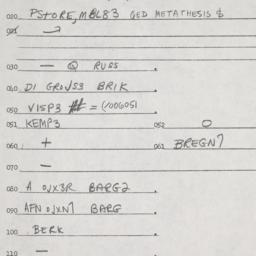 020 PSTORE, MBL83 GED METATHESIS &
021
030 — Q RUSS
040 DI GROJS3 BRIK
050 VISP3 # = (/006051
051 KEMP3 052 O
060 + 061 BREGN7
070 —
080 A OJX3R BARG2
090 AFN OJXN7 BARG
100 BERK
110 —